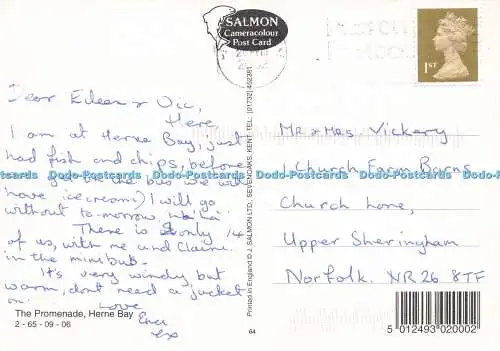 SALMON
Cameracolour
Post Card
1ST
Dear Eileen & Vic,
Here
I am at Herne Bay, just
had fish and chips, before
we get on the bus we will
have icecreams) I will go
without to-morrow, ha ha
There is only 14
of us, with me and Claire
in the minibus.
It's very windy but
warm, don't need a jacket
on. Love
The Promenade, Herne Bay
2 - 65 - 09 - 06
Printed in England © J. SALMON LTD., SEVENOAKS, KENT. TEL: (01732) 452381
64
Mr & Mrs. Vickery
1 Church Farm Barns
Church Lane,
Upper Sheringham
Norfolk. NR26 8TF
5 012493 020002
Dodo-Postcards Dodo-Postcards Dodo-Postcards Dodo-Postcards Dodo-Postcards